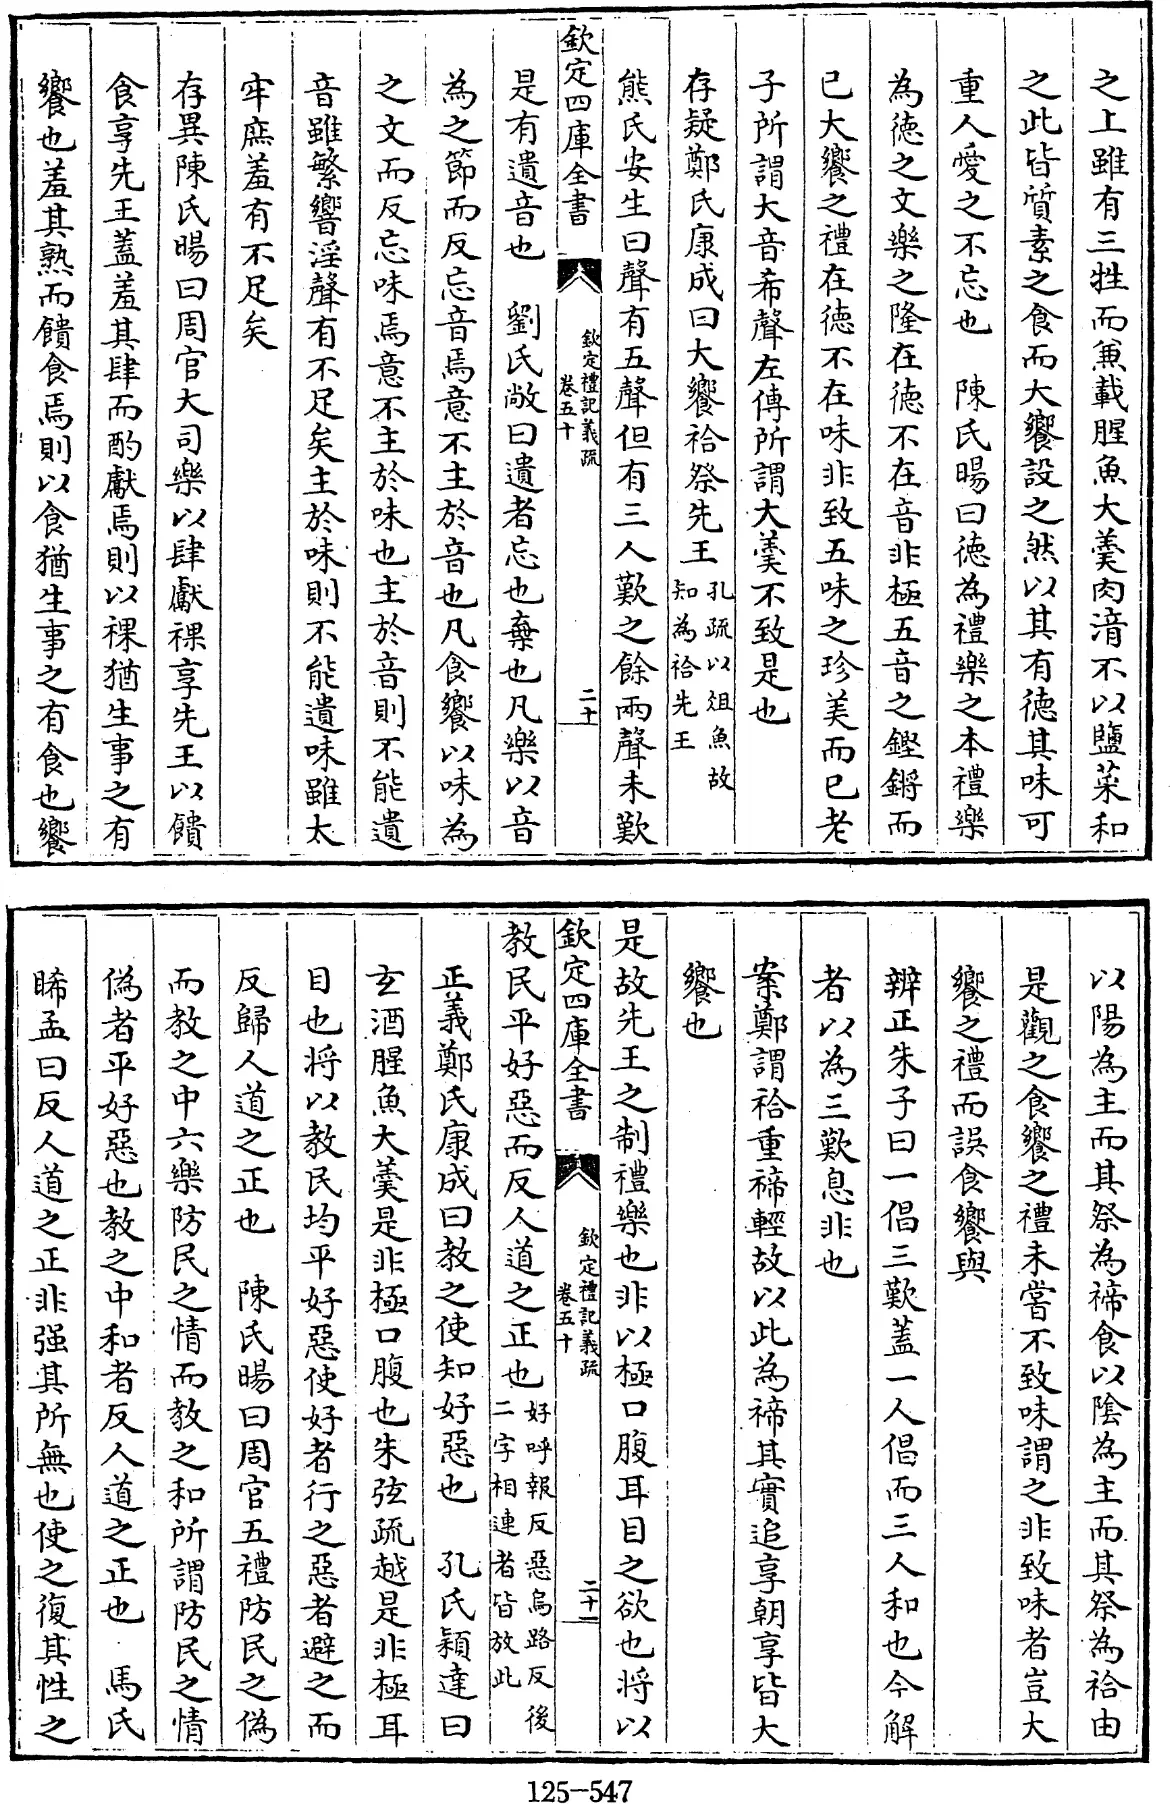 之上雖有三牲而兼載腥魚大羹肉湆不以鹽菜和
之此皆質素之食而大饗設之然以其有徳其味可
重人愛之不忘也　陳氏暘曰徳為禮樂之本禮樂
為徳之文樂之隆在徳不在音非極五音之鏗鏘而
已大饗之禮在徳不在味非致五味之珍美而已老
子所謂大音希聲左傳所謂大羹不致是也
存疑鄭氏康成曰大饗祫祭先王孔疏以俎魚故知為祫先王
熊氏安生曰聲有五聲但有三人歎之餘兩聲未歎
欽定四庫全書　欽定禮記義疏卷五十　二十
是有遺音也　劉氏敞曰遺者忘也棄也凡樂以音
為之節而反忘音焉意不主於音也凡食饗以味為
之文而反忘味焉意不主於味也主於音則不能遺
音雖繁響淫聲有不足矣主於味則不能遺味雖太
牢庶羞有不足矣
存異陳氏暘曰周官大司樂以肆獻祼享先王以饋
食享先王蓋羞其肆而酌獻焉則以祼猶生事之有
饗也羞其熟而饋食焉則以食猶生事之有食也饗
以陽為主而其祭為禘食以陰為主而其祭為祫由
是觀之食饗之禮未嘗不致味謂之非致味者豈大
饗之禮而誤食饗與
辨正朱子曰一倡三歎蓋一人倡而三人和也今解
者以為三歎息非也
案鄭謂祫重禘輕故以此為禘其實追享朝享皆大
饗也
是故先王之制禮樂也非以極口腹耳目之欲也將以
欽定四庫全書　欽定禮記義疏卷五十　二十一
教民平好惡而反人道之正也好呼報反惡烏路反後二字相連者皆放此
正義鄭氏康成曰教之使知好惡也　孔氏穎達曰
玄酒腥魚大羹是非極口腹也朱弦疏越是非極耳
目也將以教民均平好惡使好者行之惡者避之而
反歸人道之正也　陳氏暘曰周官五禮防民之偽
而教之中六樂防民之情而教之和所謂防民之情
偽者平好惡也教之中和者反人道之正也　馬氏
睎孟曰反人道之正非强其所無也使之復其性之
125-547